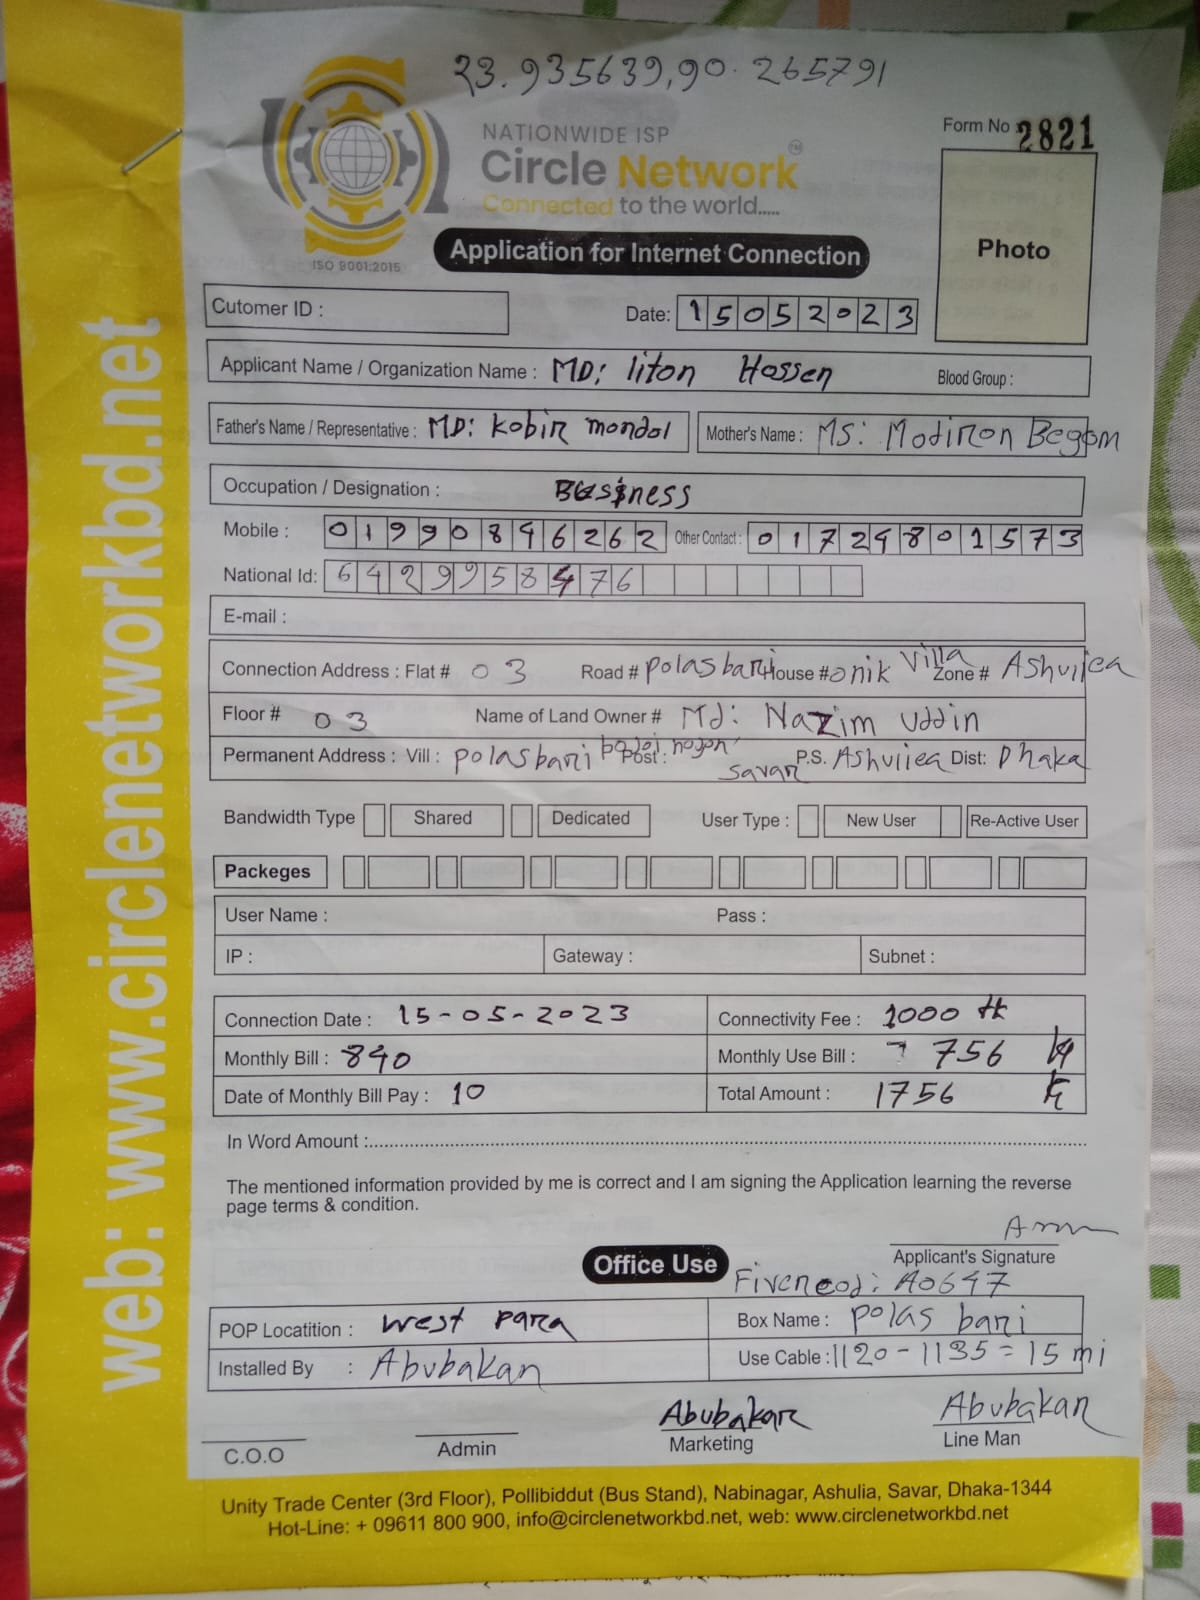 23.935639,90.265791
NATIONWIDE ISP
Circle Network
TM
Connected to the world.....
ISO 9001:2015
Form No 2821
Photo
Application for Internet Connection
Cutomer ID :
Date: 15052023
Applicant Name / Organization Name : MD: liton Hossen Blood Group :
Father's Name / Representative : MD: kobir mondol Mother's Name : MS: Modiron Begom
Occupation / Designation : Business
Mobile : 01990846262 Other Contact : 01724801573
National Id: 6429958476
E-mail :
Connection Address : Flat # 03 Road # polasbari House # onik Villa Zone # Ashuliea
Floor # 03 Name of Land Owner # Md: Nazim uddin
Permanent Address : Vill : polasbari Post : savar P.S. Ashuliea Dist: Dhaka
Bandwidth Type Shared Dedicated User Type : New User Re-Active User
Packeges
User Name : Pass :
IP : Gateway : Subnet :
Connection Date : 15-05-2023 Connectivity Fee : 1000 tk
Monthly Bill : 840 Monthly Use Bill : 756 tk
Date of Monthly Bill Pay : 10 Total Amount : 1756 tk
In Word Amount :
The mentioned information provided by me is correct and I am signing the Application learning the reverse
page terms & condition.
Applicant's Signature
Office Use
A0647
POP Locatition : west para Box Name : polas bari
Installed By : Abubakar Use Cable : 1120-1135=15 mi
Abubakar Abubakar
C.O.O Admin Marketing Line Man
Unity Trade Center (3rd Floor), Pollibiddut (Bus Stand), Nabinagar, Ashulia, Savar, Dhaka-1344
Hot-Line: + 09611 800 900, info@circlenetworkbd.net, web: www.circlenetworkbd.net
web: www.circlenetworkbd.net